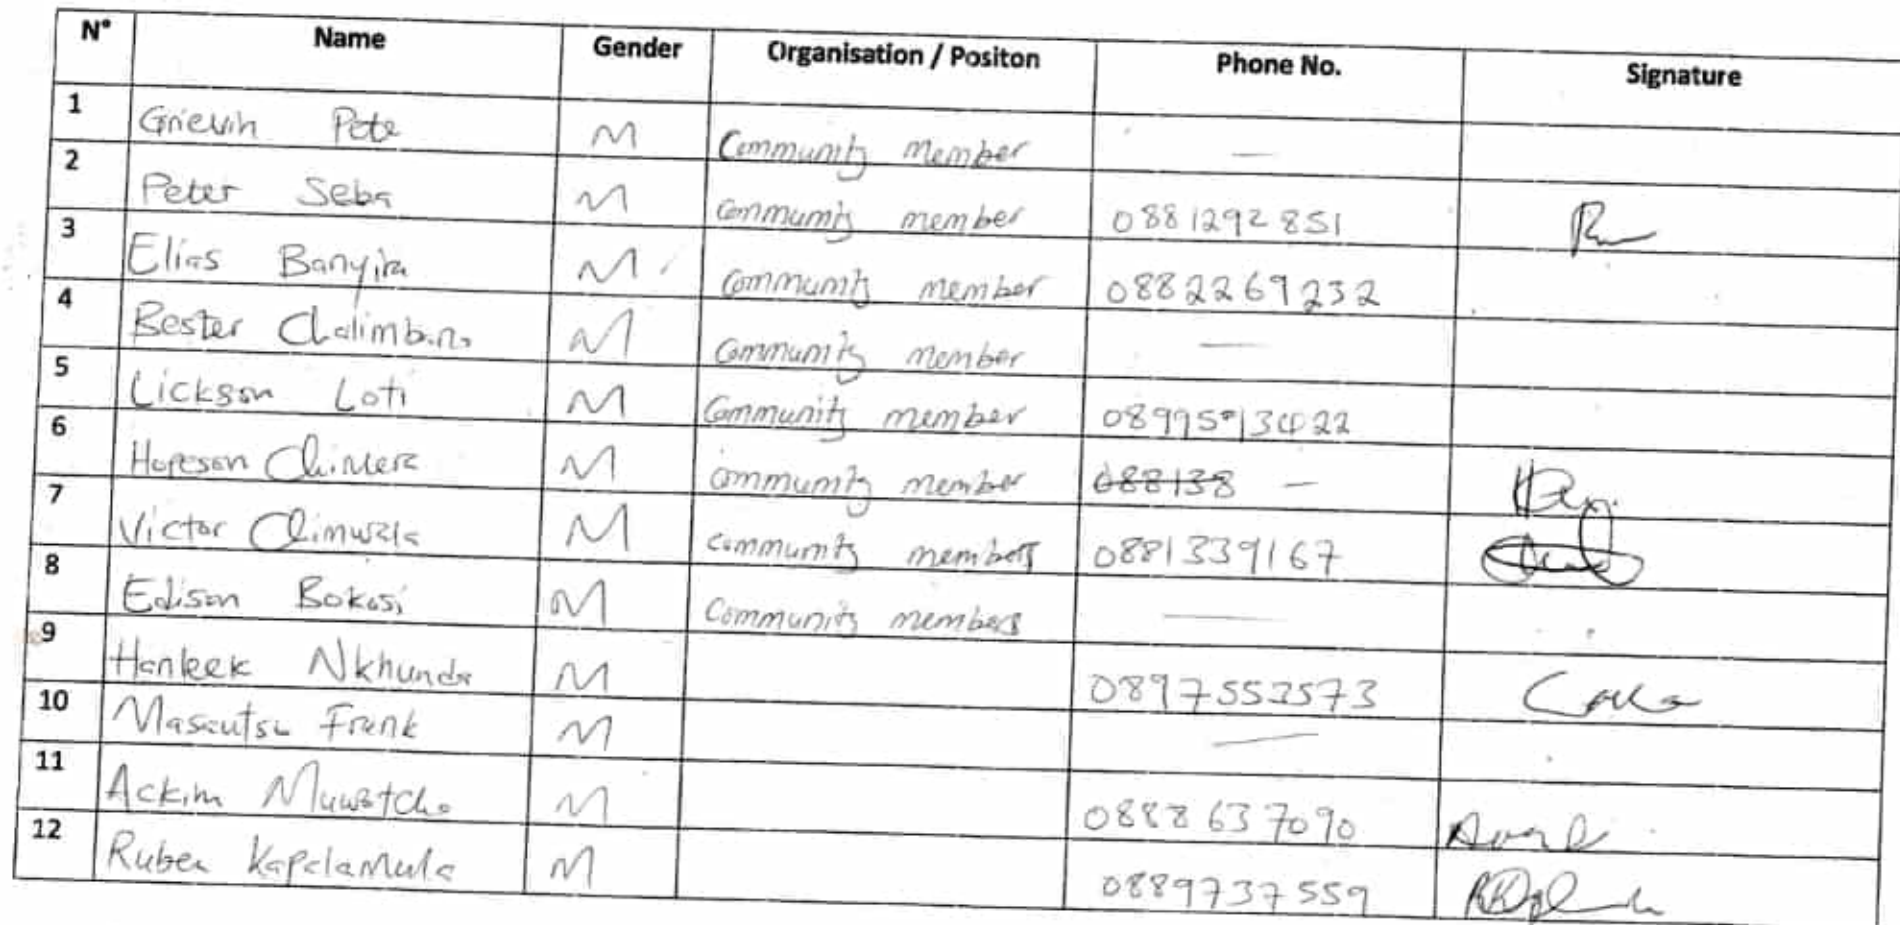 N° Name Gender Organisation / Positon Phone No. Signature
1 Grievin Pete M Community member —
2 Peter Seba M Community member 0881292851
3 Elias Banyira M Community member 0882269232
4 Bester M Community member —
5 Lickson Loti M Community member
6 Hopeson M Community member 088138 —
7 Victor M Community members 0881339167
8 Edison Bokosi M Community members —
9 Nkhunda M 0897553573
10 Frank M —
11 Ackim M 0888637090
12 Ruben Kapalamula M 0889737559